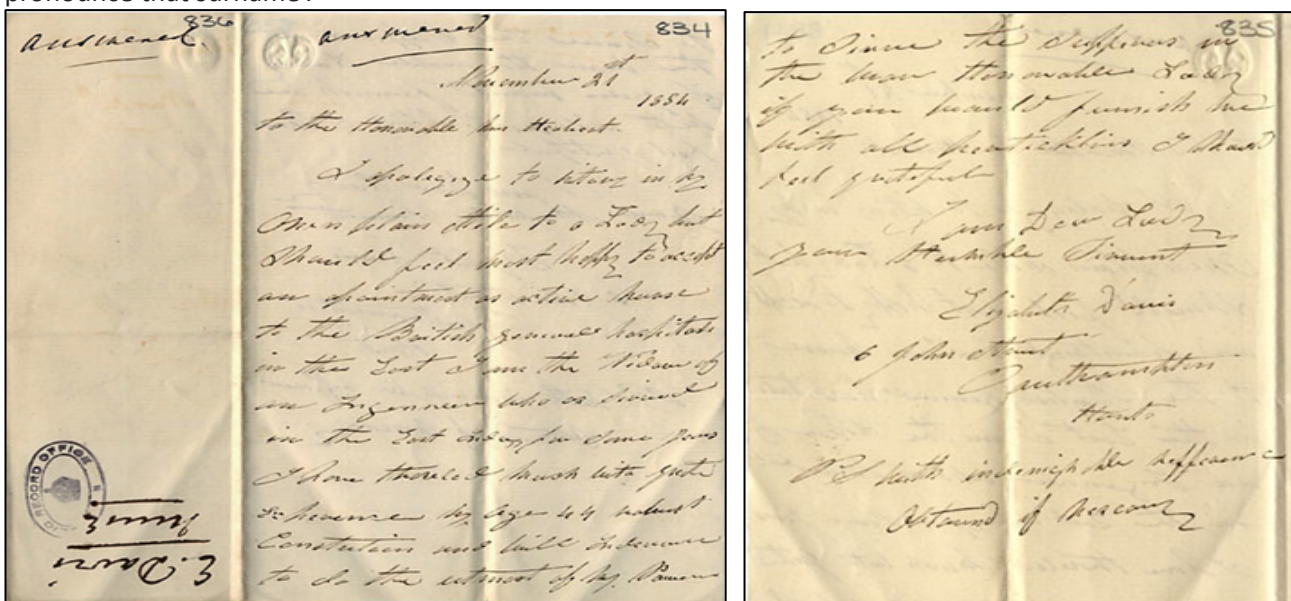 pronounce that surname?
836
answered.
answered
834
November 21st
1854
to the Honorable Mrs Herbert.
I apalegize to riting in my
own plain stile to a Lady but
Should feel most happy to accept
an apointment as active nurse
to the British general hospitals
in the East I am the Widow of
an Ingenneer who as sirved
in the East for some years
I have much with grate
my age 44 robust
Constetution and will indeavour
to do the utmost of my Power
E. Davis
Nurse
RECORD OFFICE
835
to Sirve the Sufferers in
the war Honorable Lady
if you would furnish me
with all perticklers I Should
feel grateful
I am Dear Lady
your Humble Sirvent
Elizabeth Davis
6 John Street
Southampton
Hants
PS with refference
Obtaned if